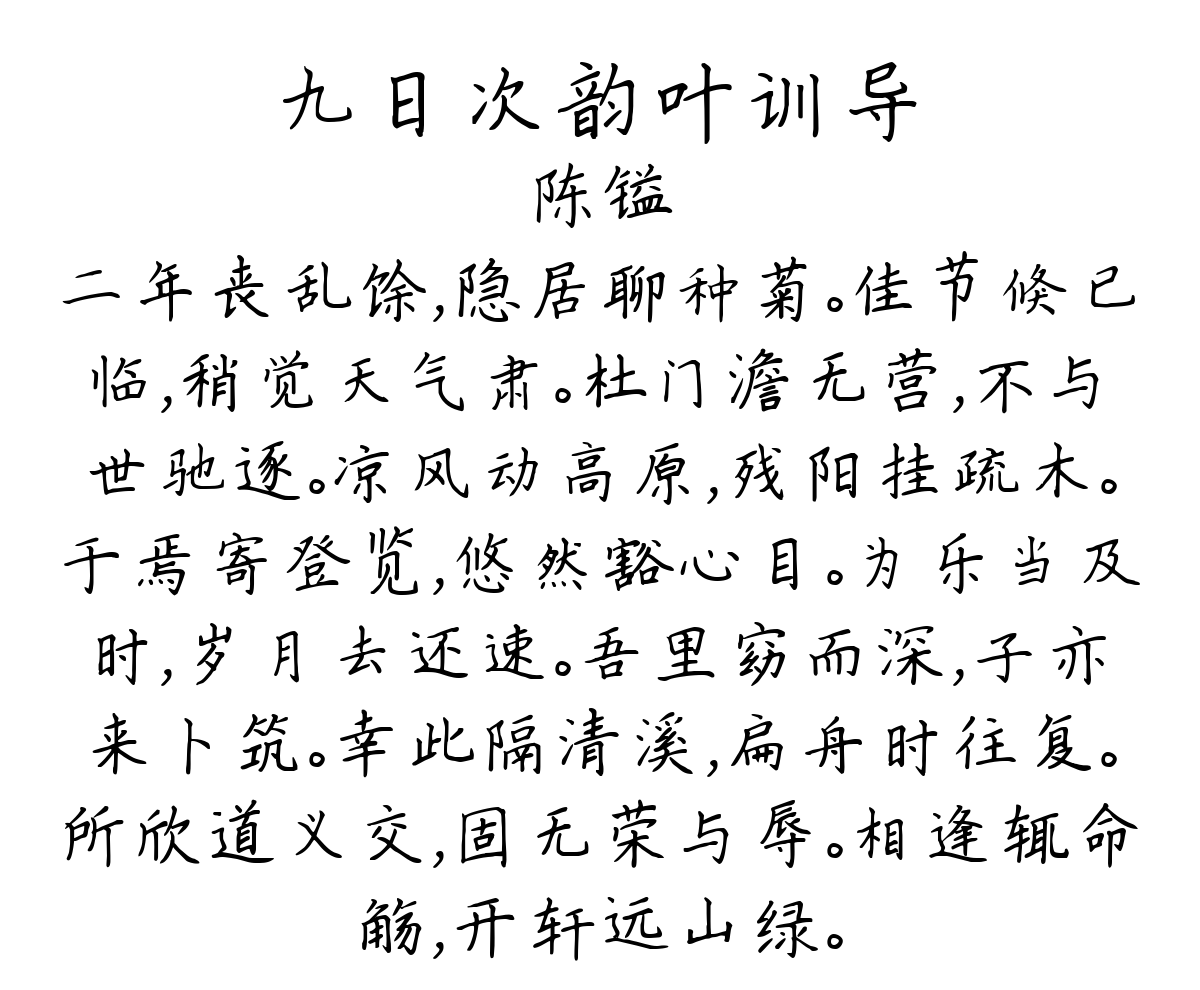 九日次韵叶训导
陈镒
二年丧乱馀,隐居聊种菊。佳节倏已
临,稍觉天气肃。杜门澹无营,不与
世驰逐。凉风动高原,残阳挂疏木。
于焉寄登览,悠然豁心目。为乐当及
时,岁月去还速。吾里窈而深,子亦
来卜筑。幸此隔清溪,扁舟时往复。
所欣道义交,固无荣与辱。相逢辄命
觞,开轩远山绿。